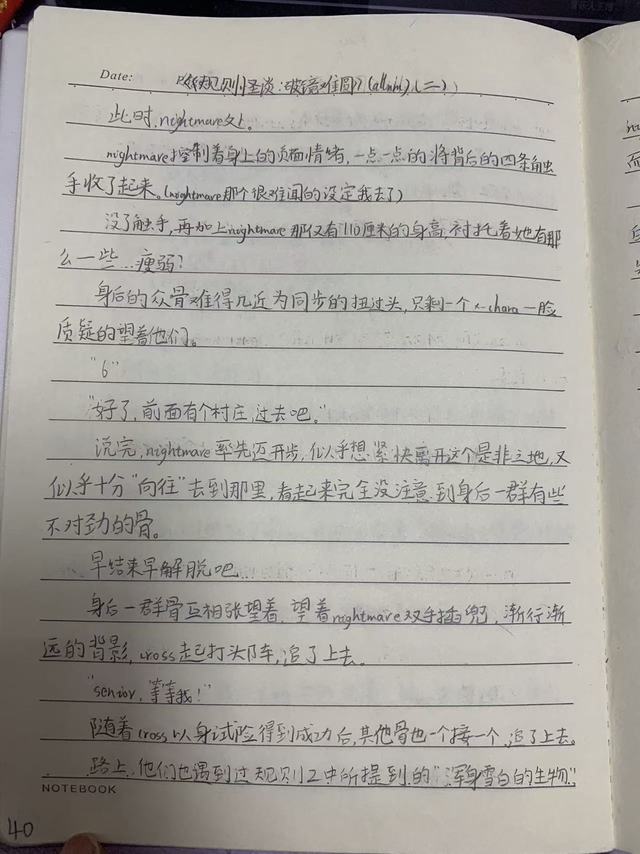 Date: 《规则怪谈:破镜难圆》(allnihl)(二)
此时,nightmare处。
nightmare控制着身上的负面情绪,一点一点的将背后的四条触
手收了起来。(nightmare那个狠难闻的设定我去了)
没了触手,再加上nightmare那仅有110厘米的身高,衬托着她有那
么一些…瘦弱?
身后的众骨难得几近为同步的扭过头,只剩一个x-chara一脸
质疑的望着他们。
"6"
"好了,前面有个村庄,过去吧。"
说完,nightmare率先迈开步,似乎想紧快离开这个是非之地,又
似乎十分"向往"去到那里,看起来完全没注意到身后一群有些
不对劲的骨。
早结束早解脱吧…
身后一群骨互相张望着,望着nightmare双手插兜,渐行渐
远的背影,cross起打头阵,追了上去。
"senior,等等我!"
随着cross以身试险得到成功后,其他骨也一个接一个,追了上去。
路上,他们也遇到过规则2中所提到的"浑身雪白的生物"
NOTEBOOK
40